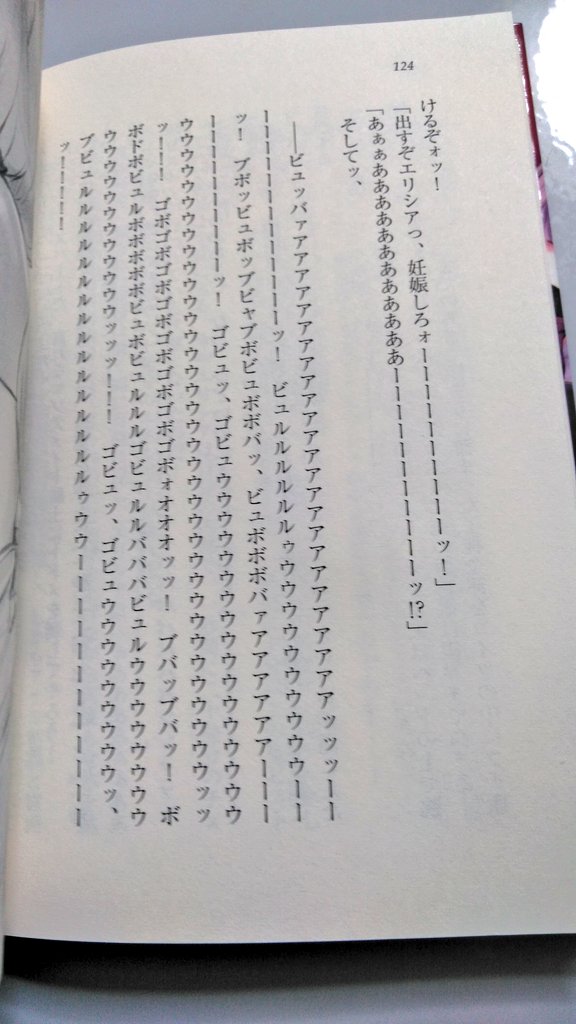 124
けるぞォッ！
「出すぞエリシアっ、妊娠しろォーーーーーーーーーーッ！」
「あぁぁああああああああああああーーーーーーーーーーーッ!?」
そしてッ、
――ビュッバァアアアアアアアアアアアアアアアアアアアアアアアアアアアッッッーー
ーーーーーーーーーーーーッ！　ビュルルルルルルゥウウウウウウウウウウウウーー
ッ！　ブボッビュボッブビャブボビュボボバッ、ビュボボボバァアアアアアアアーーー
ーーーーーーーーーーッ！　ゴビュッ、ゴビュウウウウウウウウウウウウウウウウウウ
ウウウウウウウウウウウウウウウウウウウウウウウウウウウウウウウウウウウウウウッッ
ッ！！！　ゴボゴボゴボゴボゴボゴボゴボォオオオッッ！　ブバッブバッ！　ボ
ボドボビュルボボボボボビュボビュルルルゴビュルルバババビュルウウウウウウウウ
ウウウウウウウウウウウウウッッッ！！！　ゴビュッ、ゴビュウウウウウウウウウウウッ、
ブビュルルルルルルルルルルルルルルルルルゥウウーーーーーーーーーーーー
ッ！！！！！